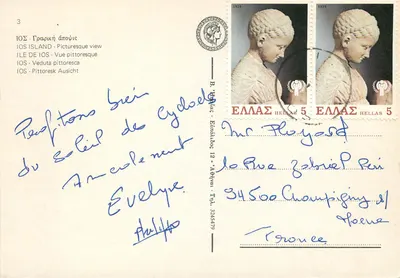 3
ΙΟΣ - Γραφική άποψις
IOS ISLAND - Picturesque view
ILE DE IOS - Vue pittoresque
IOS - Veduta pittoresca
IOS - Pittoresk Ausicht
Profitons bien
du soleil des Cyclades
Amicalement
Evelyne
Philippe
1979
ΕΛΛΑΣ HELLAS 5
1979
ΕΛΛΑΣ HELLAS 5
Mr Ployard
10 Rue Gabriel Péri
94500 Champigny s/
Marne
France